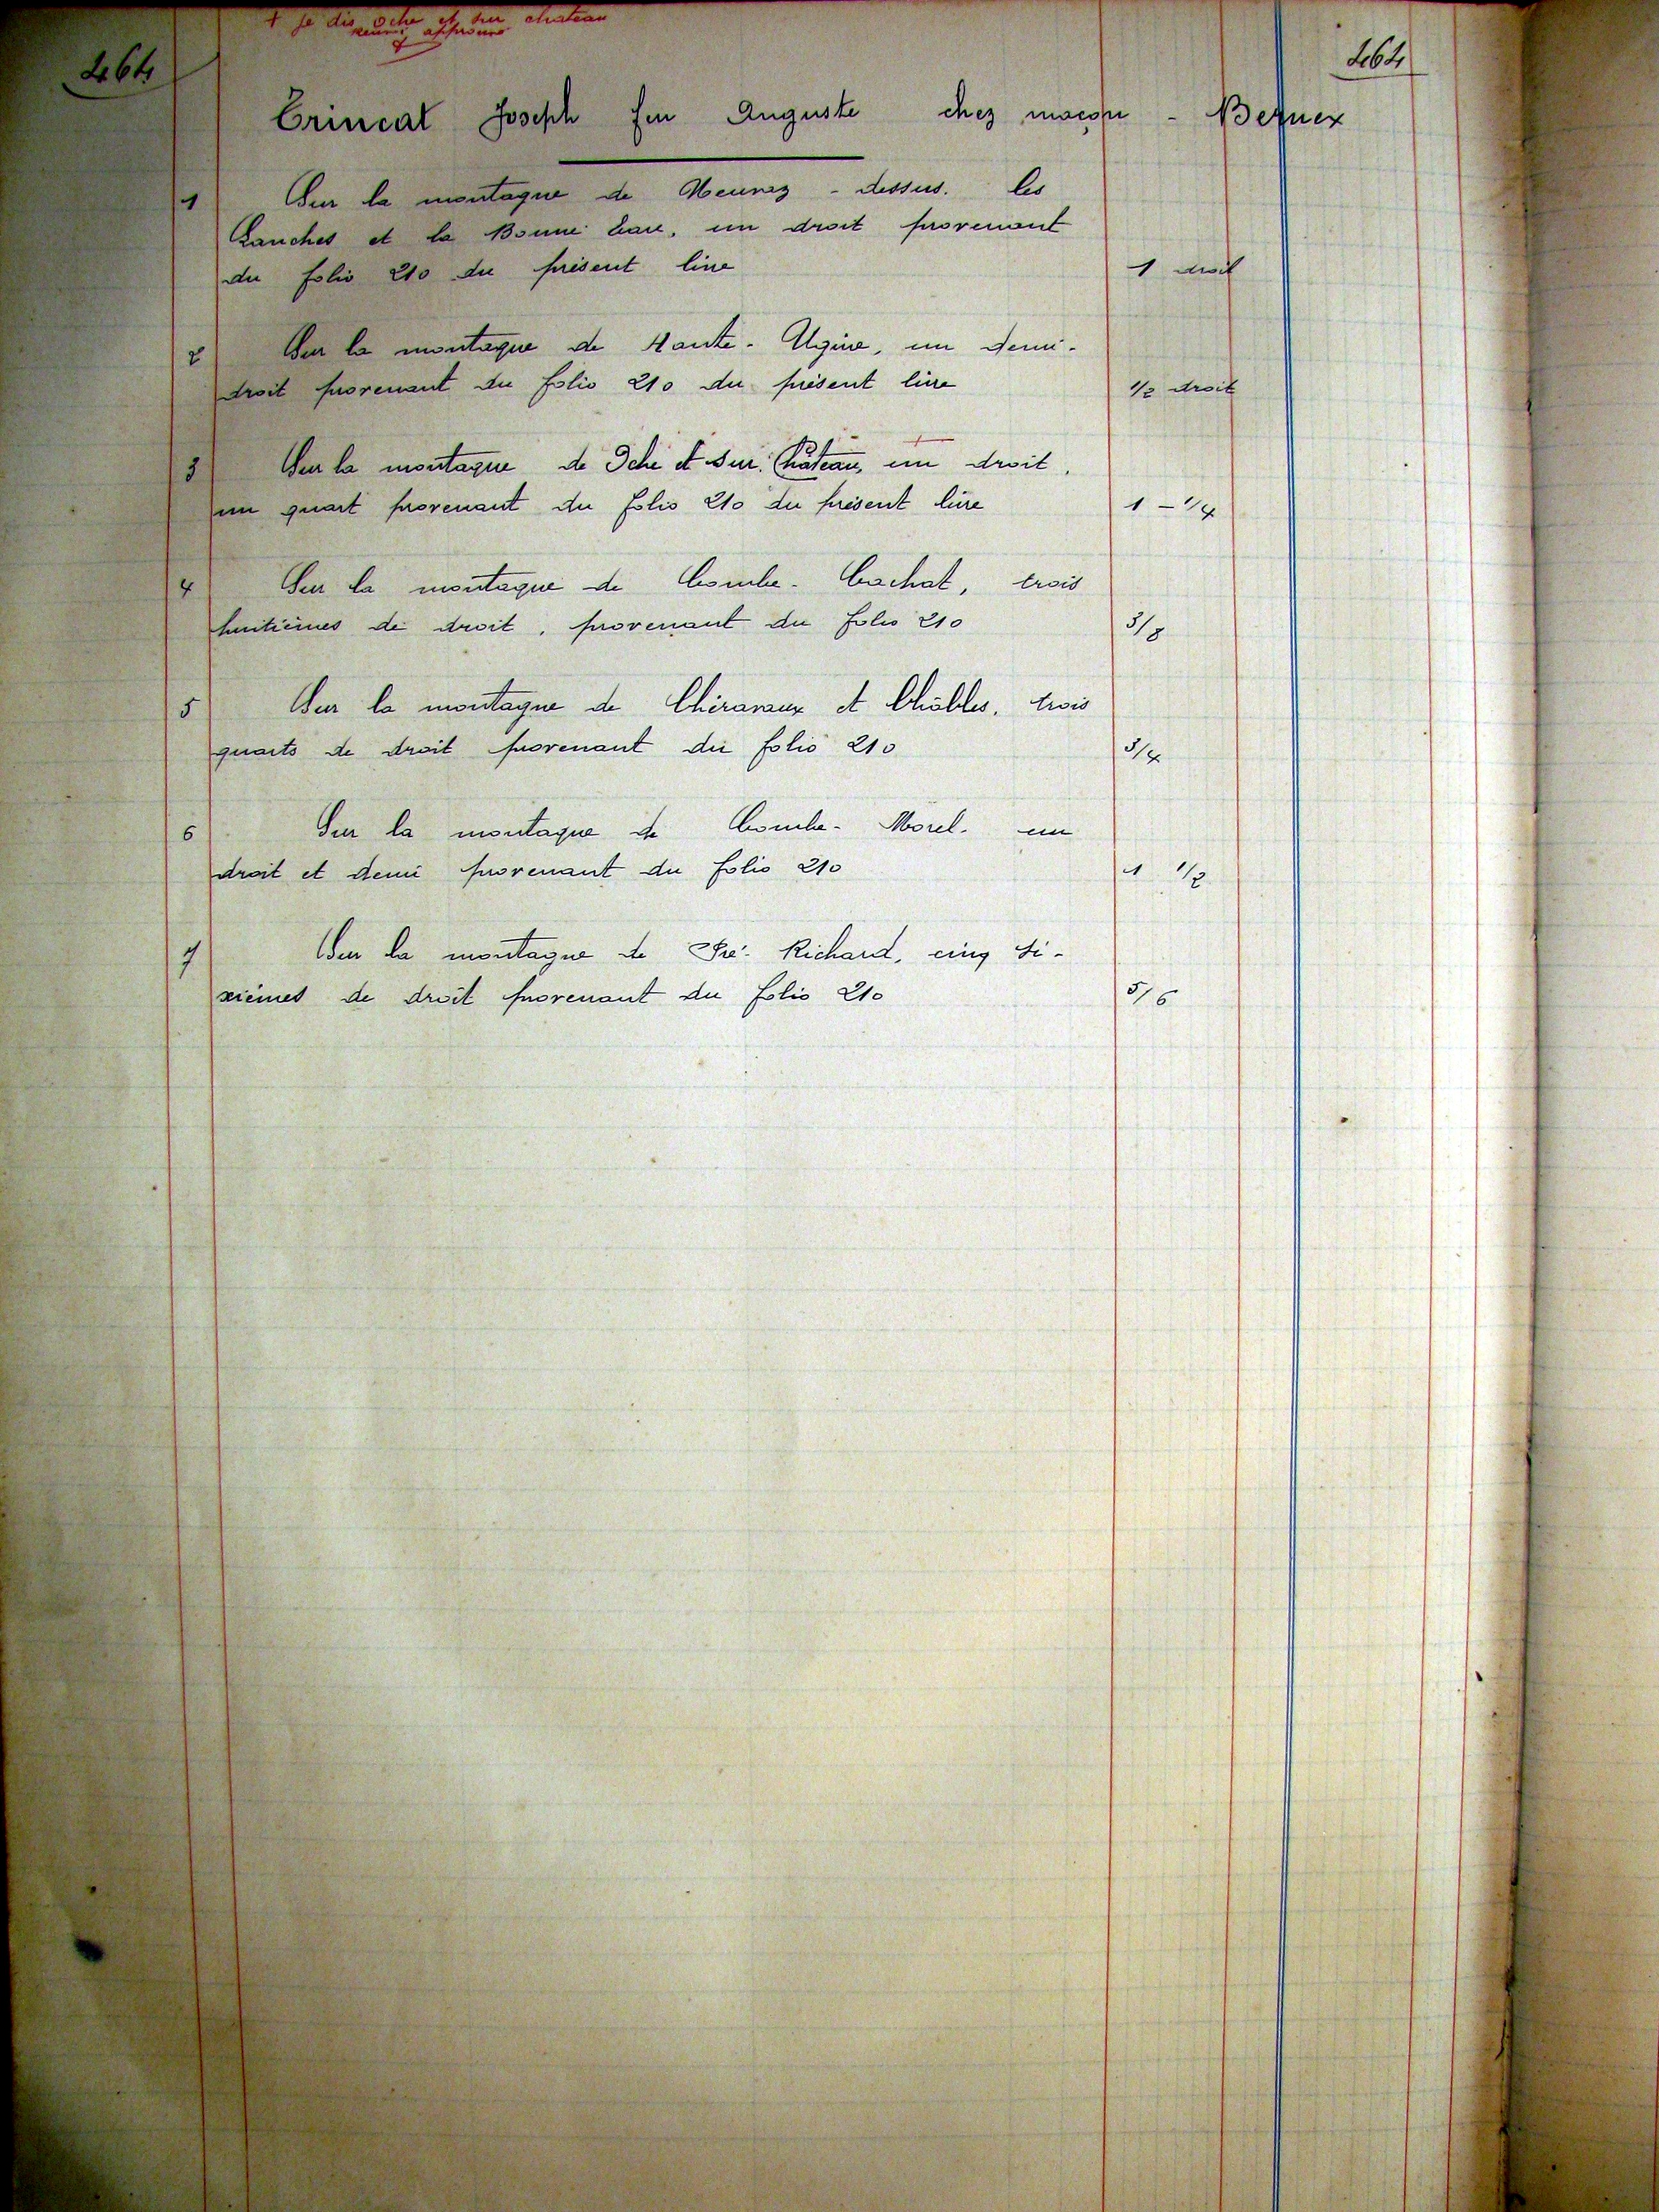 + je dis oche et sur chateau
reuni approuvé
464
464
Trincat Joseph feu Auguste chez maçon - Bernex
1 Sur la montagne de Neuvaz - dessus. les
Lanches et la Bonne Eau, un droit provenant
du folio 210 du présent livre 1 droit
2 Sur la montagne de Haute-Ugine, un demi-
droit provenant du folio 210 du présent livre 1/2 droit
3 Sur la montagne de Oche et Sur. Château, un droit,
un quart provenant du folio 210 du présent livre 1 - 1/4
4 Sur la montagne de Combe-Cachat, trois
huitièmes de droit, provenant du folio 210 3/8
5 Sur la montagne de et Châbles, trois
quarts de droit provenant du folio 210 3/4
6 Sur la montagne de Combe-Morel. un
droit et demi provenant du folio 210 1 1/2
7 Sur la montagne de Pré-Richard, cinq si-
xièmes de droit provenant du folio 210 5/6